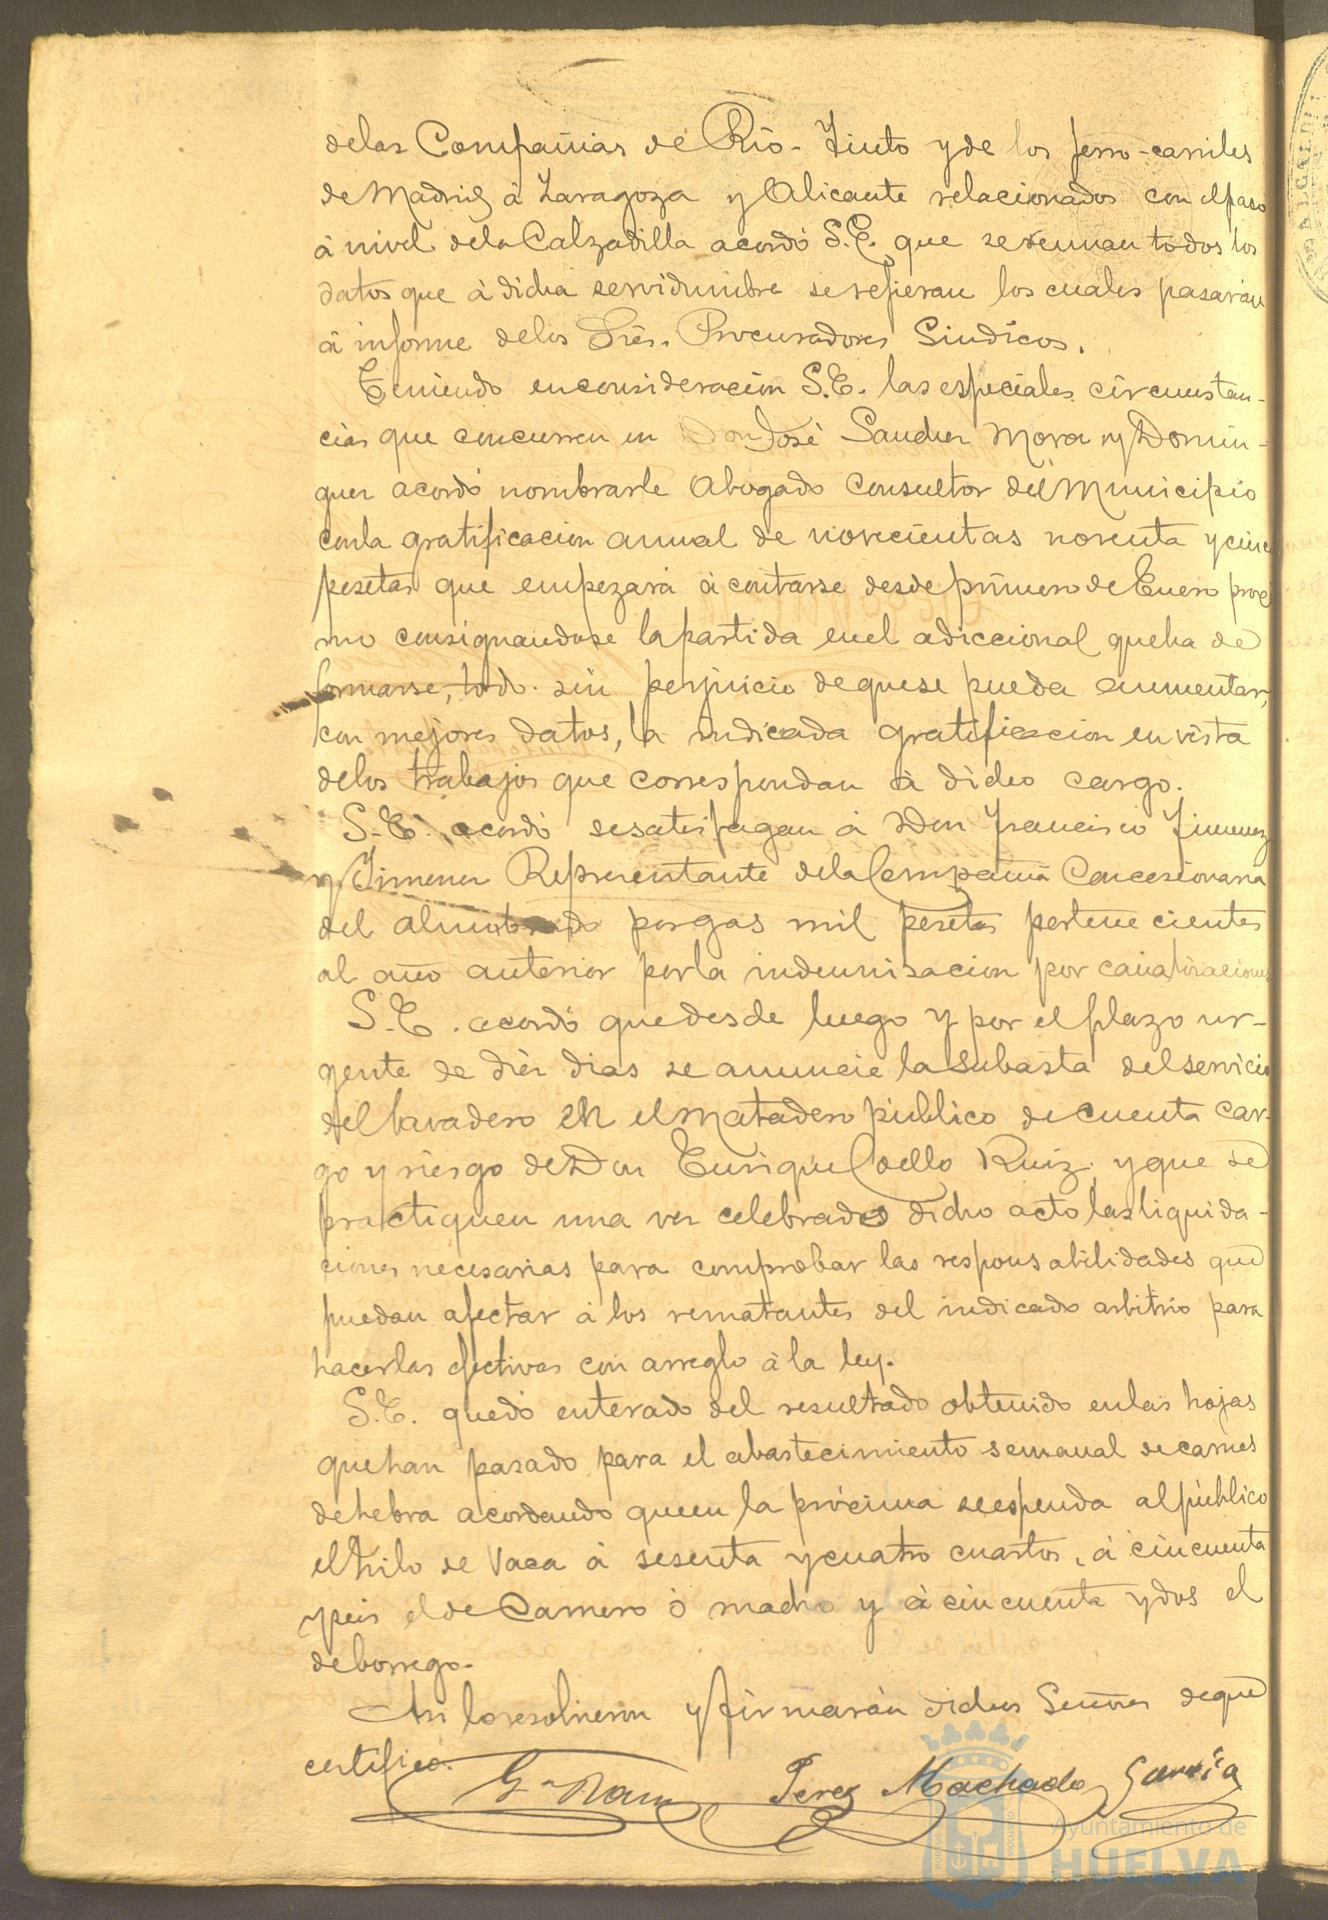 delas Compañias de Rio-Tinto y de los ferro-carriles
de Madrid á Zaragoza y Alicante relacionados con el paso
á nivel dela Calzadilla acordó S.E. que se reunan todos los
datos que á dicha servidumbre se refieran los cuales pasarán
á informe delos Sres. Procuradores Sindicos.
Teniendo en consideracion S.E. las especiales circunstan-
cias que concurren en Don José Sanchez Mora y Domin-
guez acordó nombrarle Abogado Consultor del Municipio
conla gratificacion anual de novecientas noventa y cinco
pesetas que empezará á contarse desde primero de Enero proxi
mo consignandose la partida en el adiccional que ha de
formarse, todo sin perjuicio de que se pueda aumentar,
con mejores datos, la indicada gratificacion en vista
delos trabajos que correspondan á dicho cargo.
S.E. acordó se satisfagan á Don Francisco Jimenez
y Jimenez Representante dela Compañia Concesionaria
del alumbrado por gas mil pesetas pertenecientes
al año anterior por la indemnisacion por
S.E. acordó que desde luego y por el plazo ur-
gente de diez dias se anuncie la subasta del servicio
del lavadero en el Matadero público de cuenta car-
go y riesgo de Don Enrique Coello Ruiz y que se
practiquen una vez celebrados dicho acto las liquida-
ciones necesarias para comprobar las responsabilidades que
puedan afectar á los rematantes del indicado arbitrio para
hacerlas efectivas con arreglo á la ley.
S.E. quedó enterado del resultado obtenido en las hojas
que han pasado para el abastecimiento semanal de carnes
de hebra acordando que en la procima se espenda al público
el kilo de Vaca á sesenta y cuatro cuartos, á cincuenta
y seis el de Carnero ó macho y á cincuenta y dos el
de borrego.
Asi lo resolvieron y firmarán dichos Señores de que
certifico.
Perez Machado Garcia
Ayuntamiento de
HUELVA